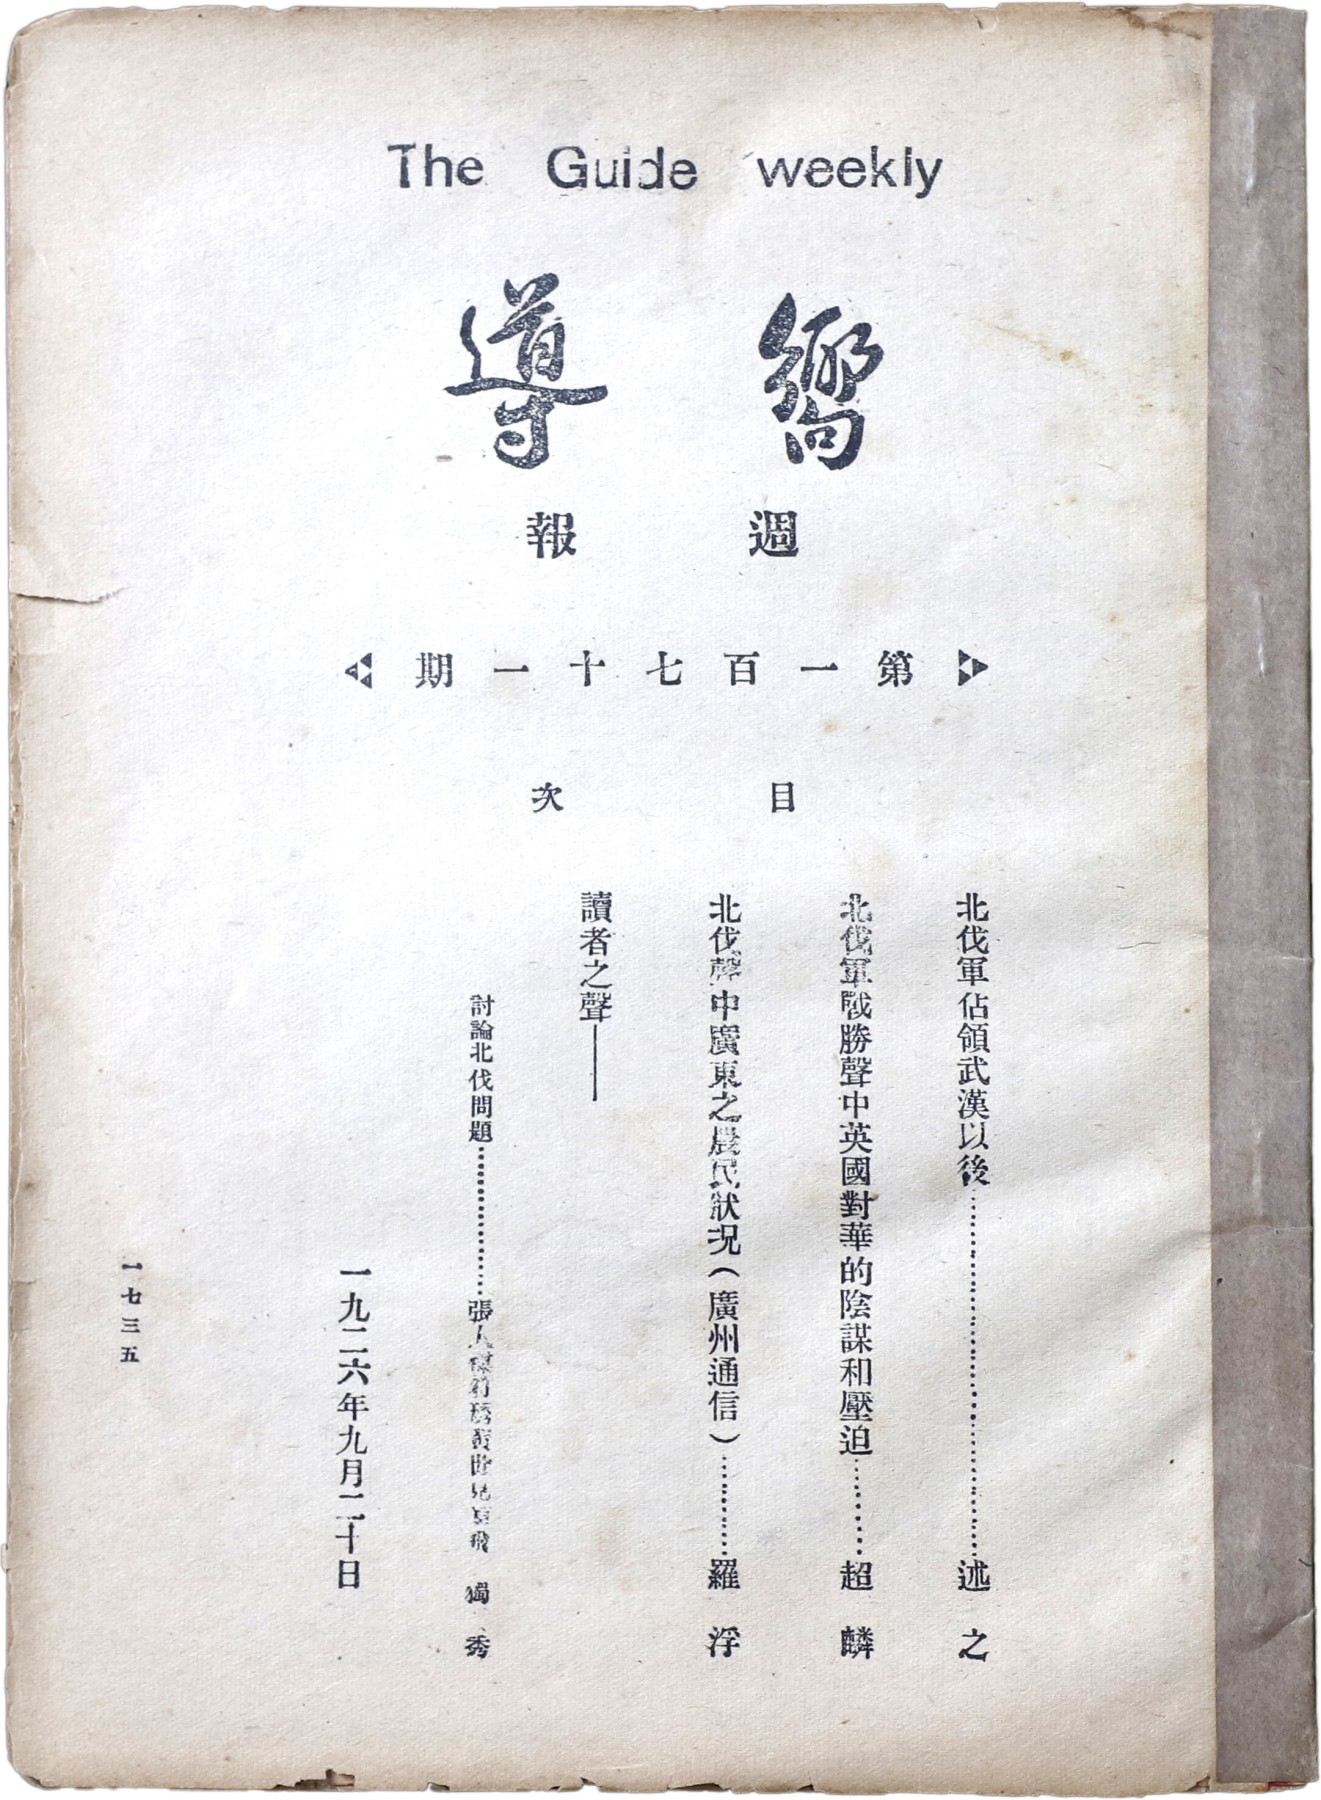 The Guide weekly
嚮導
週報
第一百七十一期
目次
北伐軍佔領武漢以後……述之
北伐軍戰勝聲中英國對華的陰謀和壓迫……超麟
北伐聲中廣東之農民狀況(廣州通信)……羅浮
讀者之聲——
討論北伐問題……張人傑符琇黃世見冥飛 獨秀
一九二六年九月二十日
一七三五